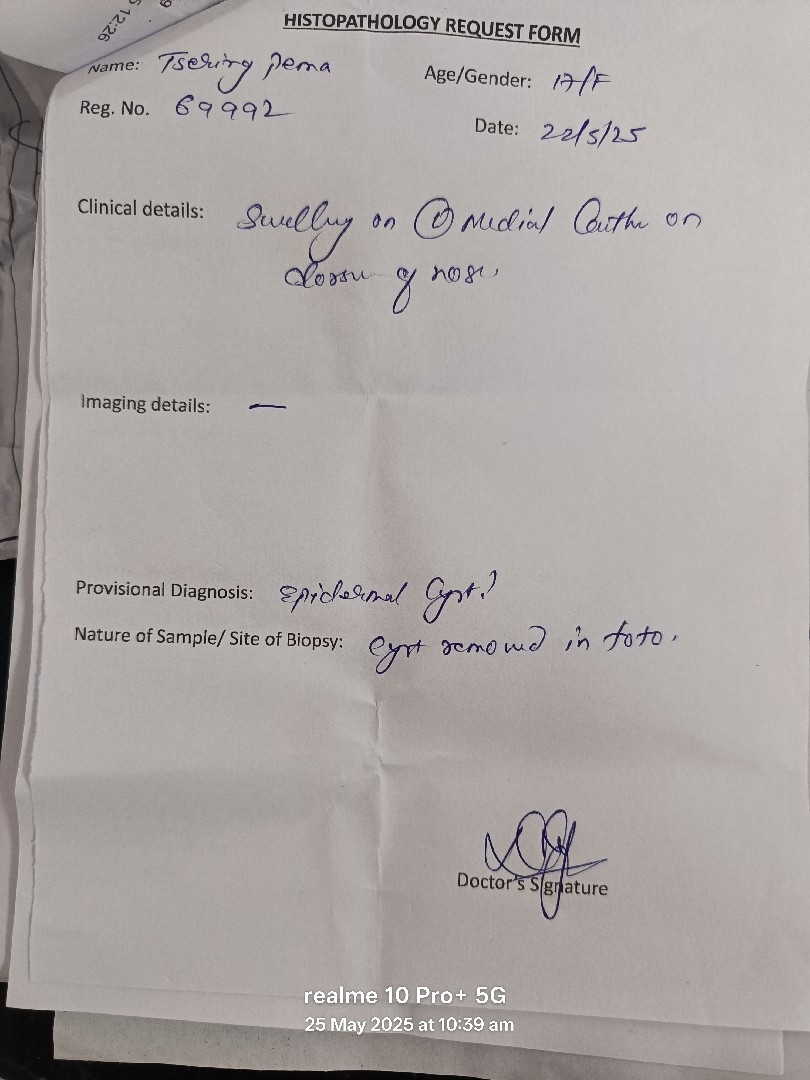 12:26
HISTOPATHOLOGY REQUEST FORM
Name: Tsering pema Age/Gender: 17/F
Reg. No. 69992
Date: 22/5/25
Clinical details: Swelling on Medial Canthu on
dorsu of nose.
Imaging details: —
Provisional Diagnosis: Epidermal Cyst?
Nature of Sample/ Site of Biopsy: Cyst removed in toto.
Doctor's Signature
realme 10 Pro+ 5G
25 May 2025 at 10:39 am